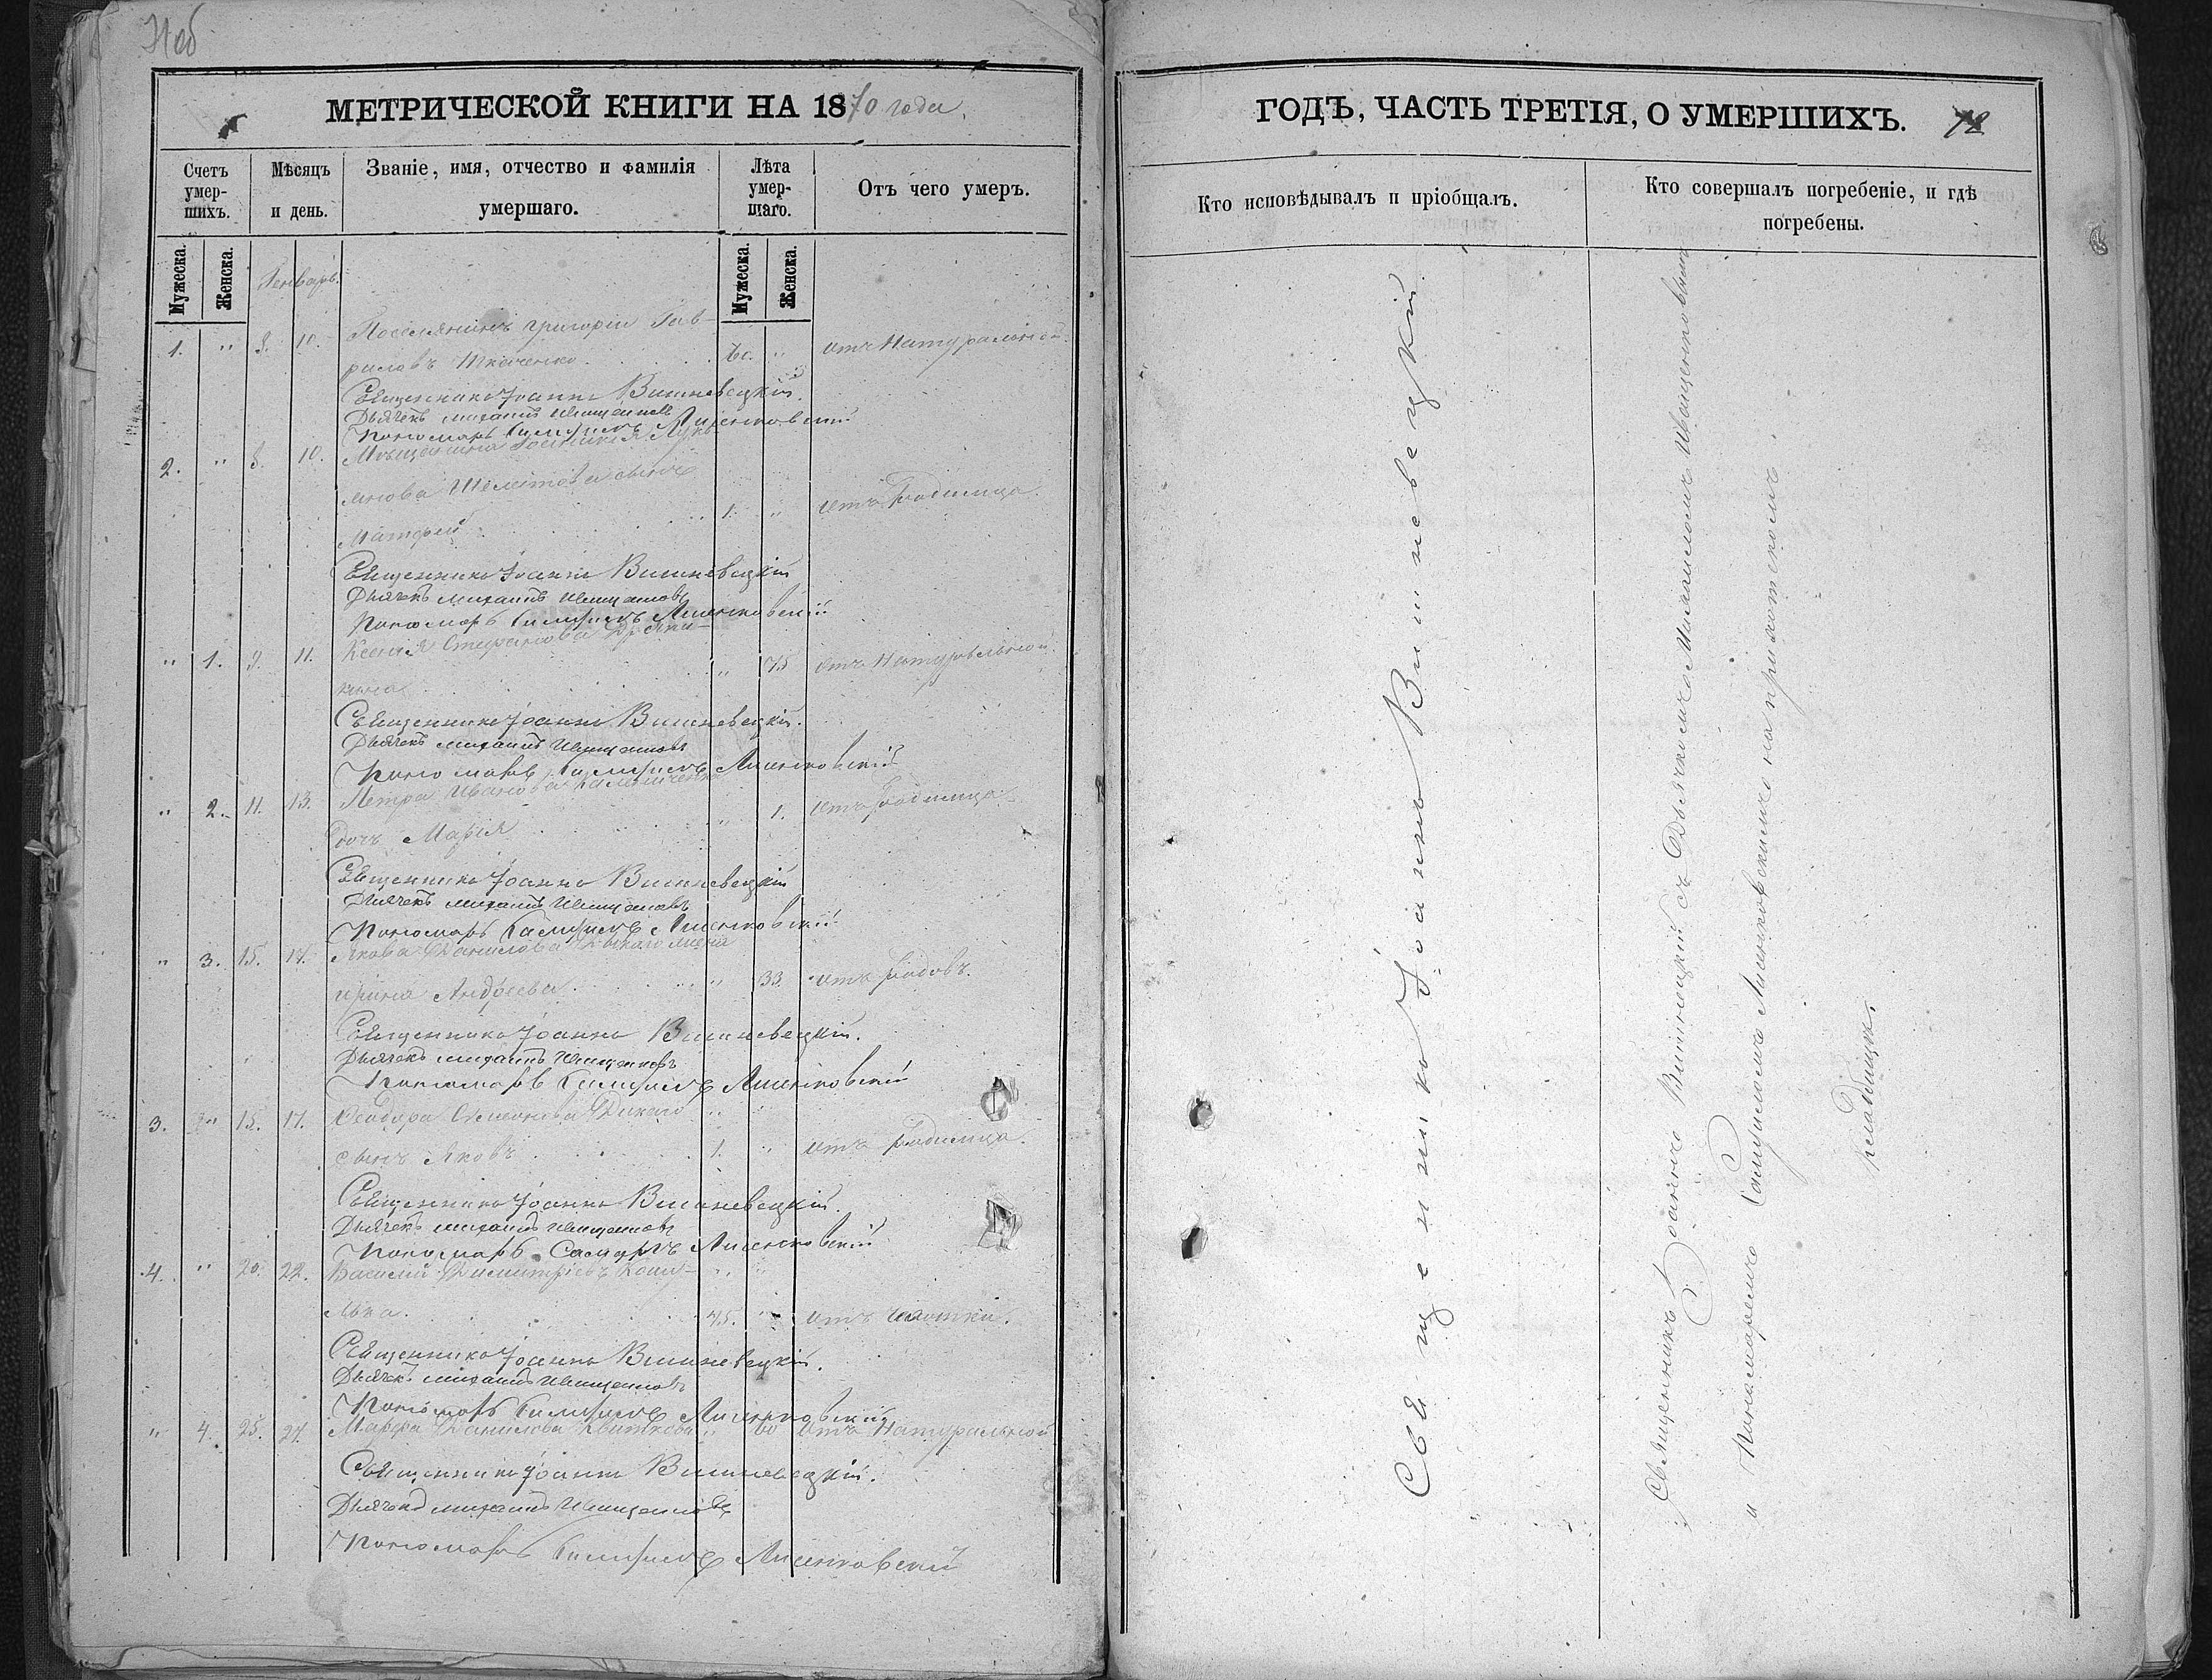 МЕТРИЧЕСКОЙ КНИГИ НА 1870 года.
Счетъ умер-шихъ.
Мѣсяцъ и день.
Званіе, имя, отчество и фамилія
умершаго.
Лѣта умер-шаго.
Отъ чего умеръ.
Мужеска.
Женска.
Генварь.
Мужеска.
Женска.
1. " 8. 10. Поселянинъ Григорій Гав-
риловъ Ткаченко. " отъ Натуральной.
Священникъ Іоаннъ Вишневецкій.
Дьячекъ Михаилъ Иващенковъ
Пономарь Лисенковскій
2. " 8. 10. Мѣщанина
сынъ
Матѳей 1. " отъ Родимца.
Священникъ Іоаннъ Вишневецкій
Дьячекъ Михаилъ Иващенковъ
Пономарь Лисенковскій
" 1. 9. 11. Ксенія Стефанова
" 75 отъ Натуральной.
Священникъ Іоаннъ Вишневецкій.
Дьячекъ Михаилъ Иващенковъ
Пономарь Лисенковскій
" 2. 11. 13. Петра Иванова
дочь Марія " 1. отъ Родимца.
Священникъ Іоаннъ Вишневецкій
Дьячекъ Михаилъ Иващенковъ
Пономарь Лисенковскій
" 3. 15. 17. Якова Данилова жена
Ирина Андреева. " 33. отъ Родовъ.
Священникъ Іоаннъ Вишневецкій.
Дьячекъ Михаилъ Иващенковъ
Пономарь Лисенковскій
3. " 15. 17. Ѳеодора Симеонова Дикаго
сынъ Яковъ. 1. " отъ Родимца.
Священникъ Іоаннъ Вишневецкій.
Дьячекъ Михаилъ Иващенковъ
Пономарь Лисенковскій
4. " 20. 22. Василій Димитріевъ
75. " отъ чахотки.
Священникъ Іоаннъ Вишневецкій.
Дьячекъ Михаилъ Иващенковъ
Пономарь Лисенковскій
" 4. 25. 27. Марфа Данилова Квиткова " 60 отъ Натуральной
Священникъ Іоаннъ Вишневецкій.
Дьячекъ Михаилъ Иващенковъ
Пономарь Лисенковскій
ГОДЪ, ЧАСТЬ ТРЕТІЯ, О УМЕРШИХЪ.
Кто исповѣдывалъ и пріобщалъ.
Кто совершалъ погребеніе, и гдѣ
погребены.
Священникъ Іоаннъ Вишневецкій.
Священникъ Іоаннъ Вишневецкій съ Дьячкомъ Михаиломъ Иващенковымъ
и Пономаремъ Лисенковскимъ на приходскомъ
кладбищѣ.